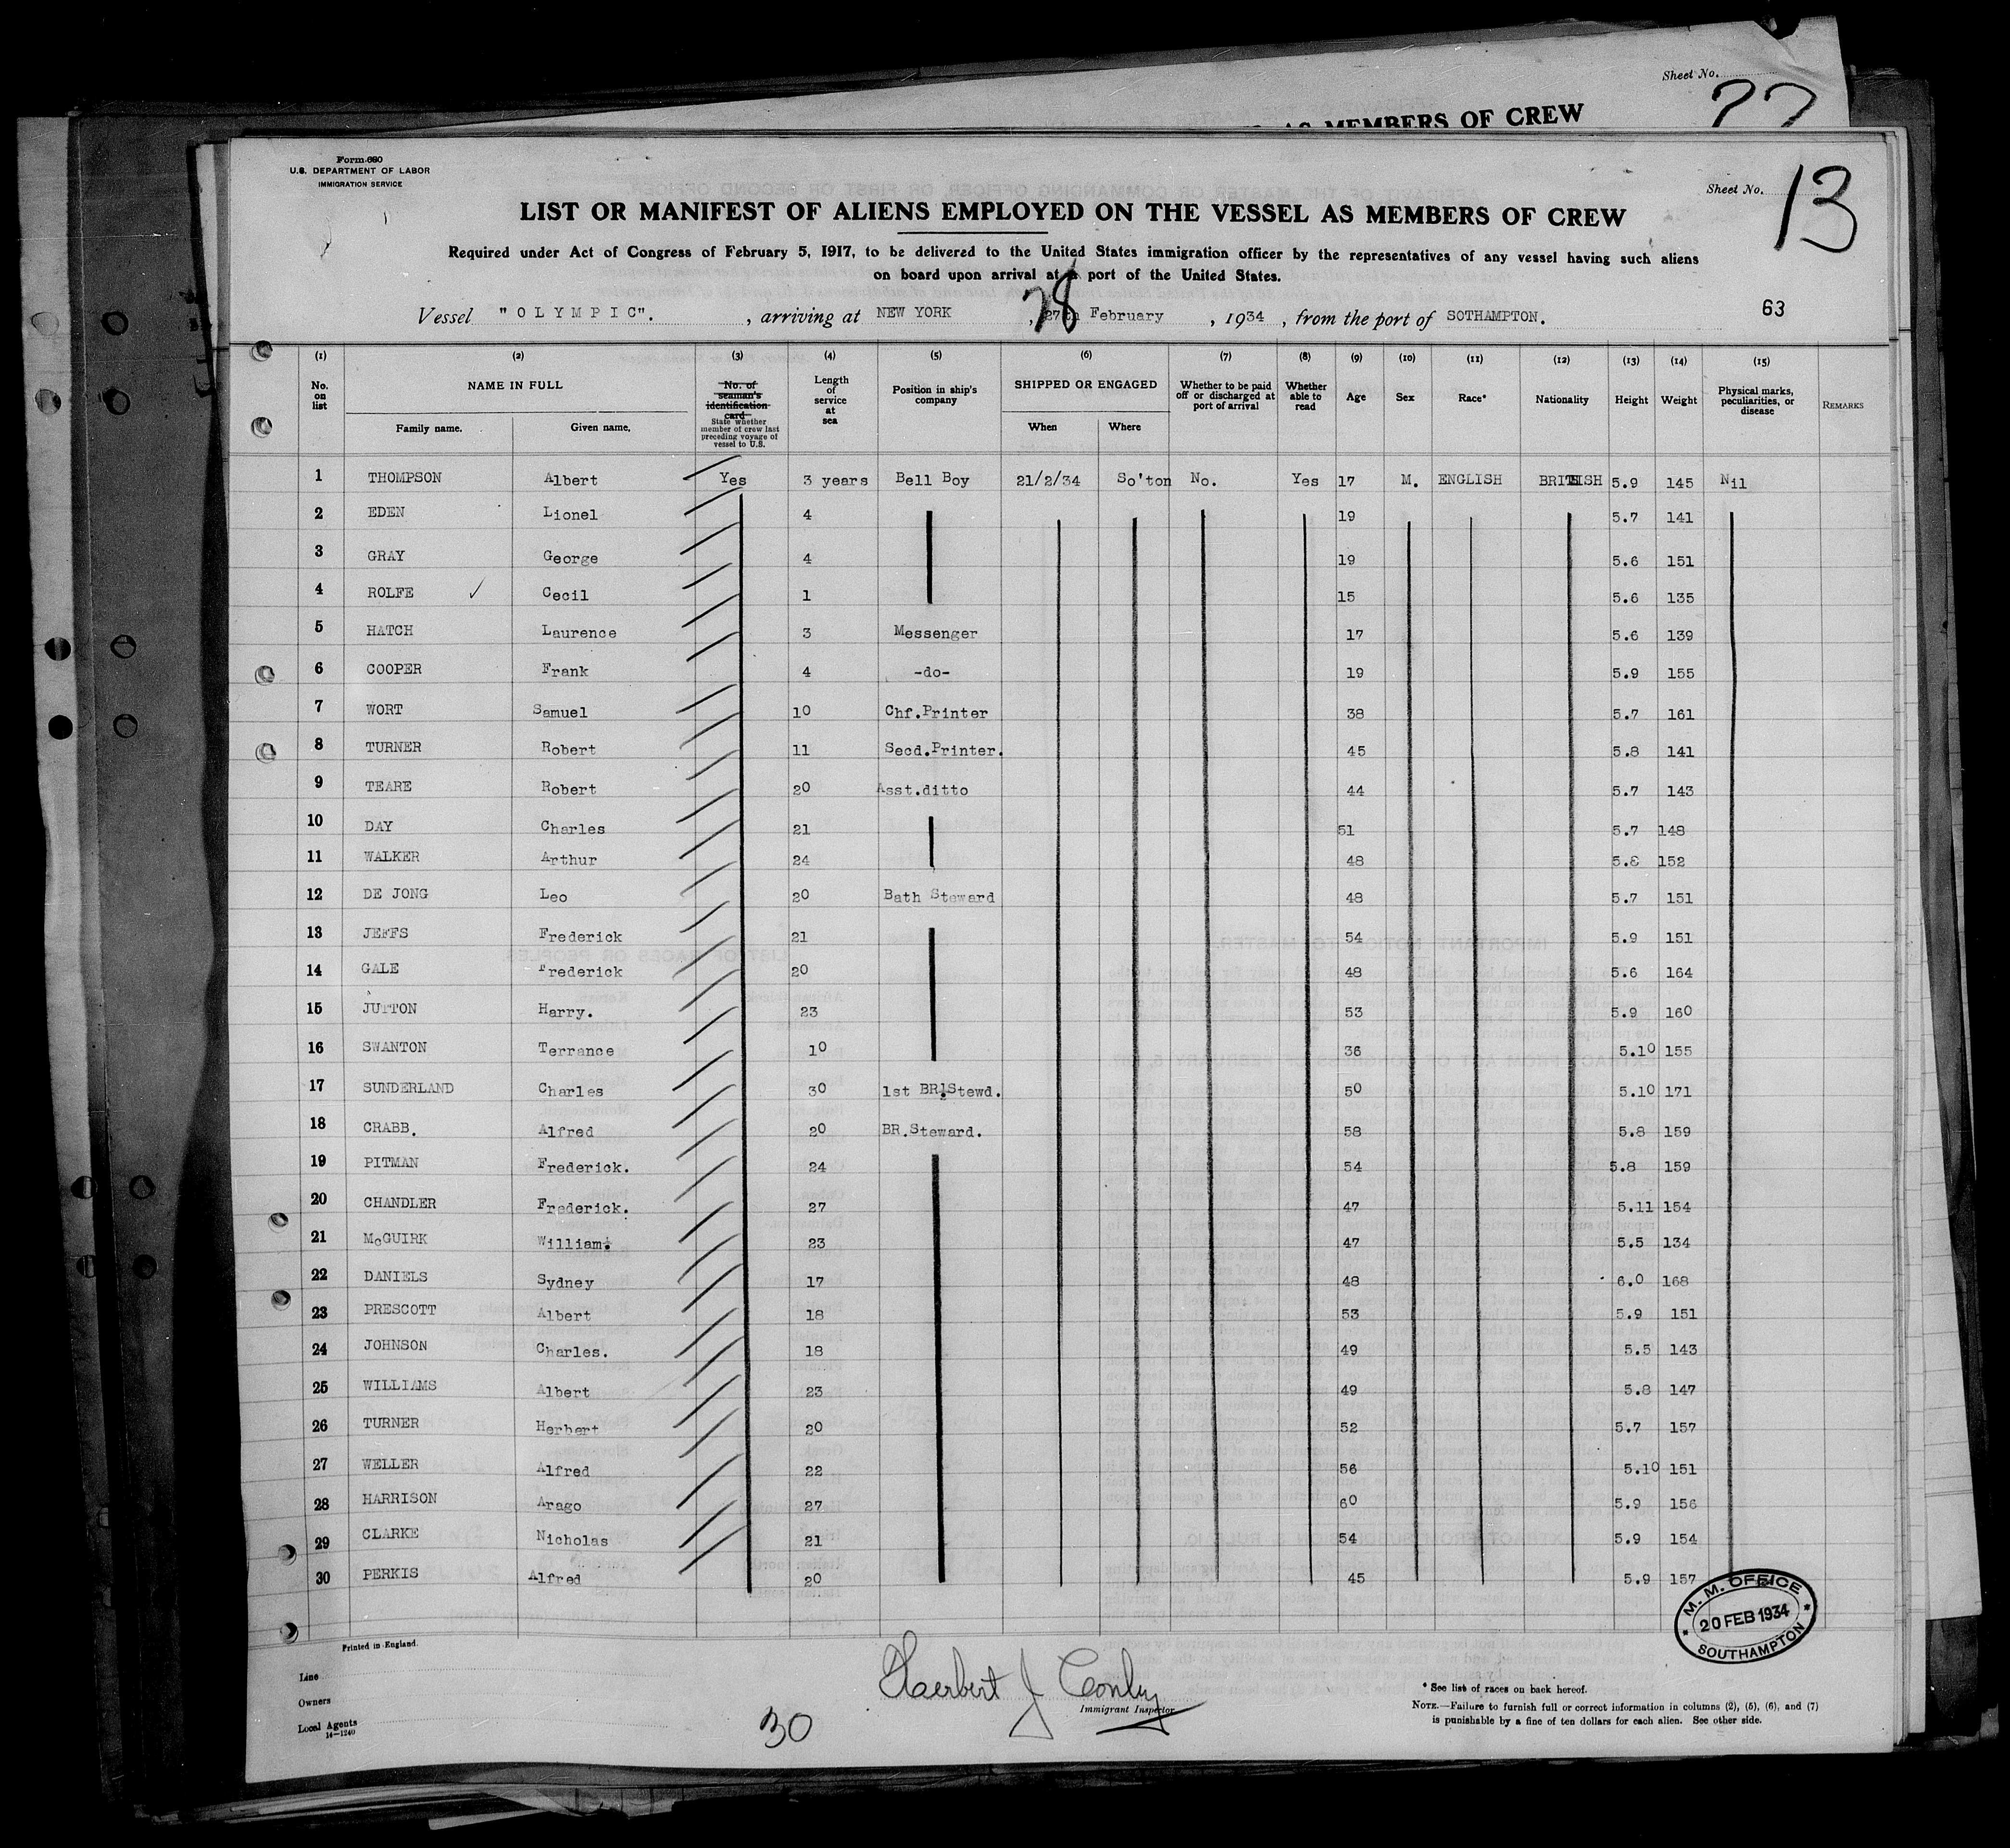 Sheet No.
22
AS MEMBERS OF CREW
Form 680
U.S. DEPARTMENT OF LABOR
IMMIGRATION SERVICE
Sheet No. 13
LIST OR MANIFEST OF ALIENS EMPLOYED ON THE VESSEL AS MEMBERS OF CREW
Required under Act of Congress of February 5, 1917, to be delivered to the United States immigration officer by the representatives of any vessel having such aliens
on board upon arrival at a port of the United States.
Vessel "OLYMPIC". , arriving at NEW YORK , 27th 28 February , 1934 , from the port of SOTHAMPTON. 63
(1) (2) (3) (4) (5) (6) (7) (8) (9) (10) (11) (12) (13) (14) (15)
No. on list NAME IN FULL Family name. Given name. No. of seaman's identification card State whether member of crew last preceding voyage of vessel to U.S. Length of service at sea Position in ship's company SHIPPED OR ENGAGED When Where Whether to be paid off or discharged at port of arrival Whether able to read Age Sex Race* Nationality Height Weight Physical marks, peculiarities, or disease REMARKS
1 THOMPSON Albert Yes 3 years Bell Boy 21/2/34 So'ton No. Yes 17 M. ENGLISH BRITISH 5.9 145 Nil
2 EDEN Lionel 4 19 5.7 141
3 GRAY George 4 19 5.6 151
4 ROLFE ✓ Cecil 1 15 5.6 135
5 HATCH Laurence 3 Messenger 17 5.6 139
6 COOPER Frank 4 -do- 19 5.9 155
7 WORT Samuel 10 Chf.Printer 38 5.7 161
8 TURNER Robert 11 Secd.Printer. 45 5.8 141
9 TEARE Robert 20 Asst.ditto 44 5.7 143
10 DAY Charles 21 51 5.7 148
11 WALKER Arthur 24 48 5.8 152
12 DE JONG Leo 20 Bath Steward 48 5.7 151
13 JEFFS Frederick 21 54 5.9 151
14 GALE Frederick 20 48 5.6 164
15 JUTTON Harry. 23 53 5.9 160
16 SWANTON Terrance 10 36 5.10 155
17 SUNDERLAND Charles 30 1st BR.Stewd. 50 5.10 171
18 CRABB. Alfred 20 BR.Steward. 58 5.8 159
19 PITMAN Frederick. 24 54 5.8 159
20 CHANDLER Frederick. 27 47 5.11 154
21 McGUIRK William. 23 47 5.5 134
22 DANIELS Sydney 17 48 6.0 168
23 PRESCOTT Albert 18 53 5.9 151
24 JOHNSON Charles. 18 49 5.5 143
25 WILLIAMS Albert 23 49 5.8 147
26 TURNER Herbert 20 52 5.7 157
27 WELLER Alfred 22 56 5.10 151
28 HARRISON Arago 27 60 5.9 156
29 CLARKE Nicholas 21 54 5.9 154
30 PERKIS Alfred 20 45 5.9 157
M. M. OFFICE
20 FEB 1934
SOUTHAMPTON
Printed in England.
Line
Owners
Local Agents
14—1240
30
Herbert J Conley
Immigrant Inspector
* See list of races on back hereof.
NOTE.—Failure to furnish full or correct information in columns (2), (5), (6), and (7)
is punishable by a fine of ten dollars for each alien. See other side.